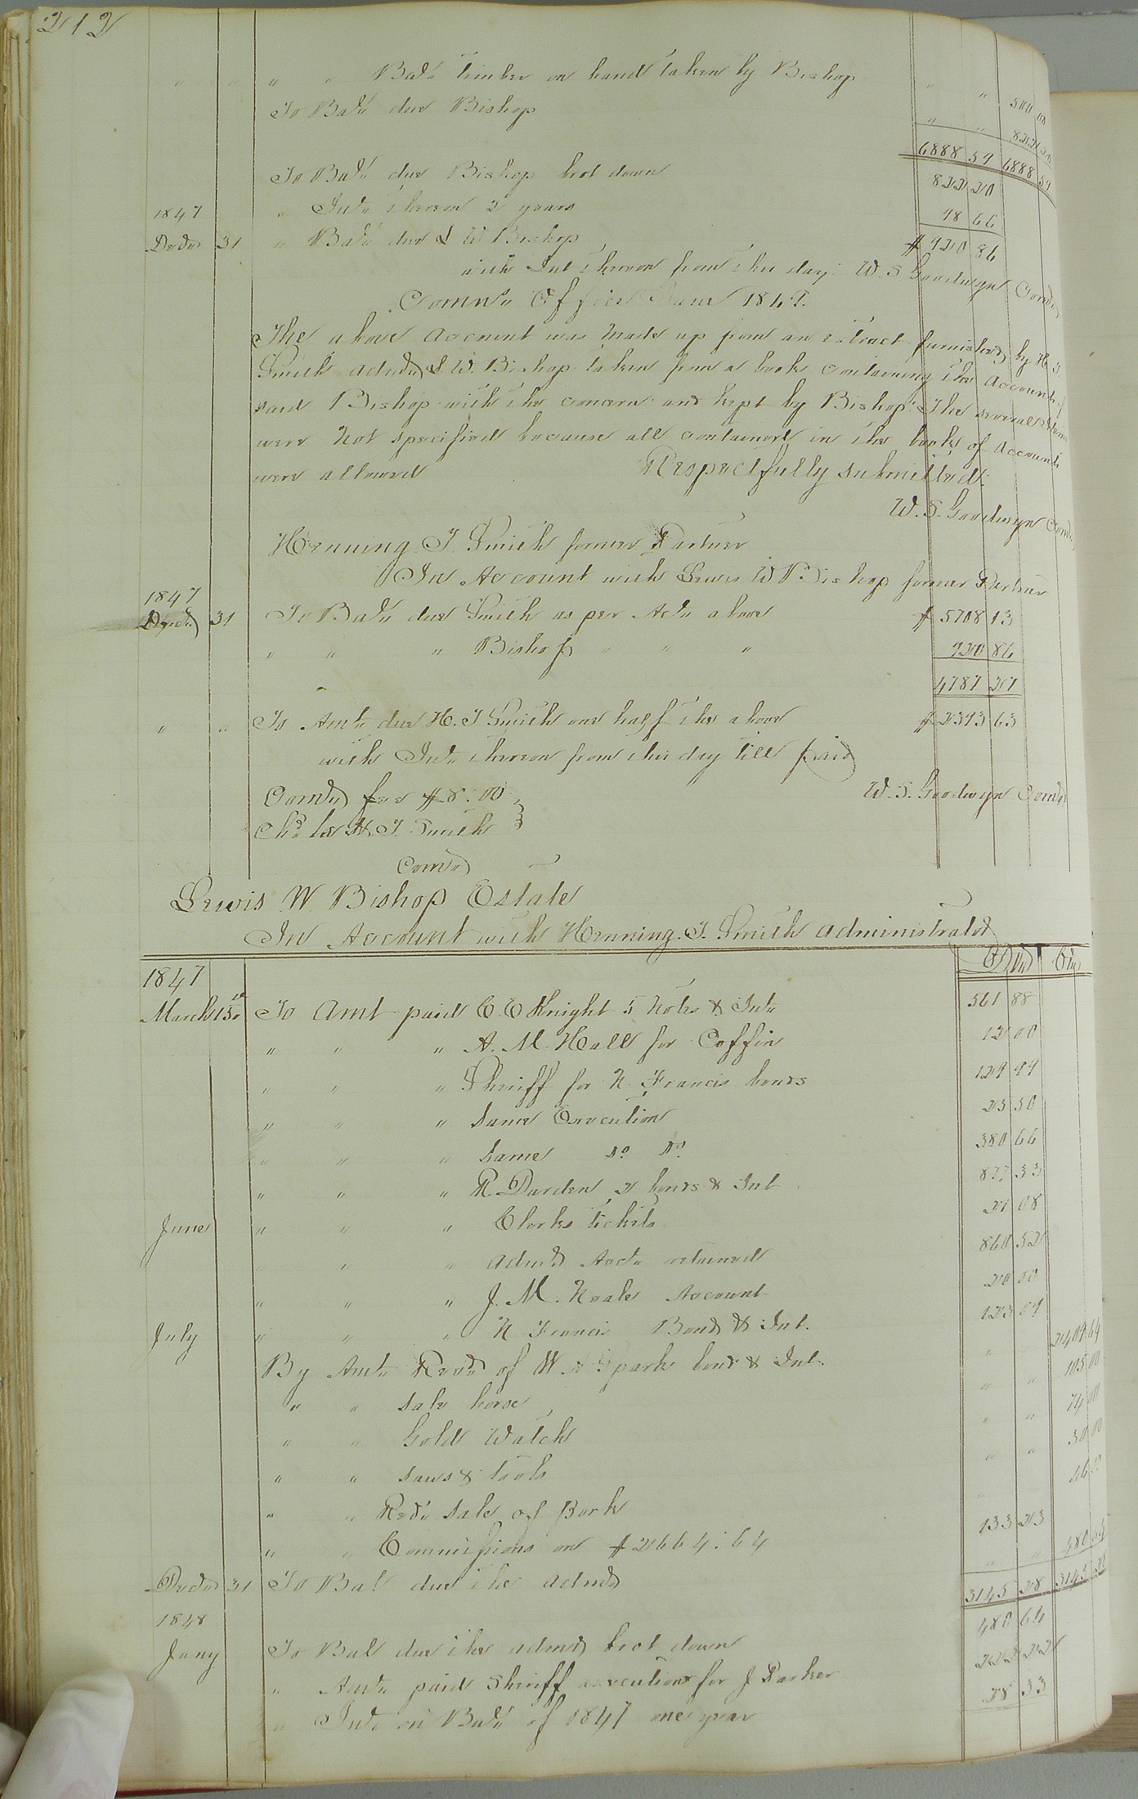 212
" " " " Bal. timber on hand taken by Bishop " " 500 00
To Bal. due Bishop " " 822 20
6888 59 6888 59
To Bal. due Bishop brot down 822 20
1847 " Int. thereon 2 years 98 66
Decr 31 " Bal. due L W Bishop $920 86
with Int thereon from this day W. S. Goodwyn Comr
Comrs Office June 1847.
The above account was made up from an extract furnished by H. T.
Smith admr of L W. Bishop taken from a book containing the accounts of
said Bishop with the concern and kept by Bishop. The several items
were not specified because all contained in the book of accounts
were allowed Respectfully submitted.
W. S. Goodwyn Comr
Henning T. Smith former Partner
In Account with Lewis W Bishop former Partner
1847
Decr 31 To Bal. due Smith as per Act. above $5708 13
" " " Bishop " " " 920 86
4787 27
" " To Amt. due H. T Smith one half the above $2393 63
with Int. thereon from this day till paid
Comr fee $8.00 W. S. Goodwyn Comr
Chd to H. T. Smith
Comr
Lewis W Bishop Estate
In Account with Henning. T. Smith administrator
1847 Dr Cr
March 15th To Amt paid C. C Knight 5 Notes & Int. 561 88
" " " A. M. Hall for Coffin 12 00
" " " Sheriff for N. Francis bonds 129 99
" " " Same Execution 25 50
" " " Same do do 380 66
" " " R. Darden 2 bonds & Int 877 33
June " " " Clerks tickets 21 08
" " admrs Act. returned 860 52
" " " J. M. Noals Account 20 00
July " " " N Francis Bond & Int. 123 09
By Amt. Recd of W. N Spark bond & Int. " " 2409 64
" " Sale horse " " 105 00
" " Gold Watch " " 74 00
" " Saws & tools " " 30 00
" " Recd Sale of Pork 46 00
" " Commissions on $2664.64 133 23
Decr 31 To Bal due the admr " " 480 64
3145 28 3145 28
1848
Jany To Bal due the admr brot down 480 64
" Amt. paid Sheriff execution for J Parker 222 22
" Int. on Bal. of 1847 one year 28 83